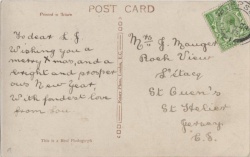 POST CARD
To dear L J
Wishing you a
merry Xmas, and a
bright and prosper
ous New Year.
With fondest love
from
Mrs J. Mauger
Rock View
St Ouen's
St Helier
Jersey
C.I.
This is a Real Photograph